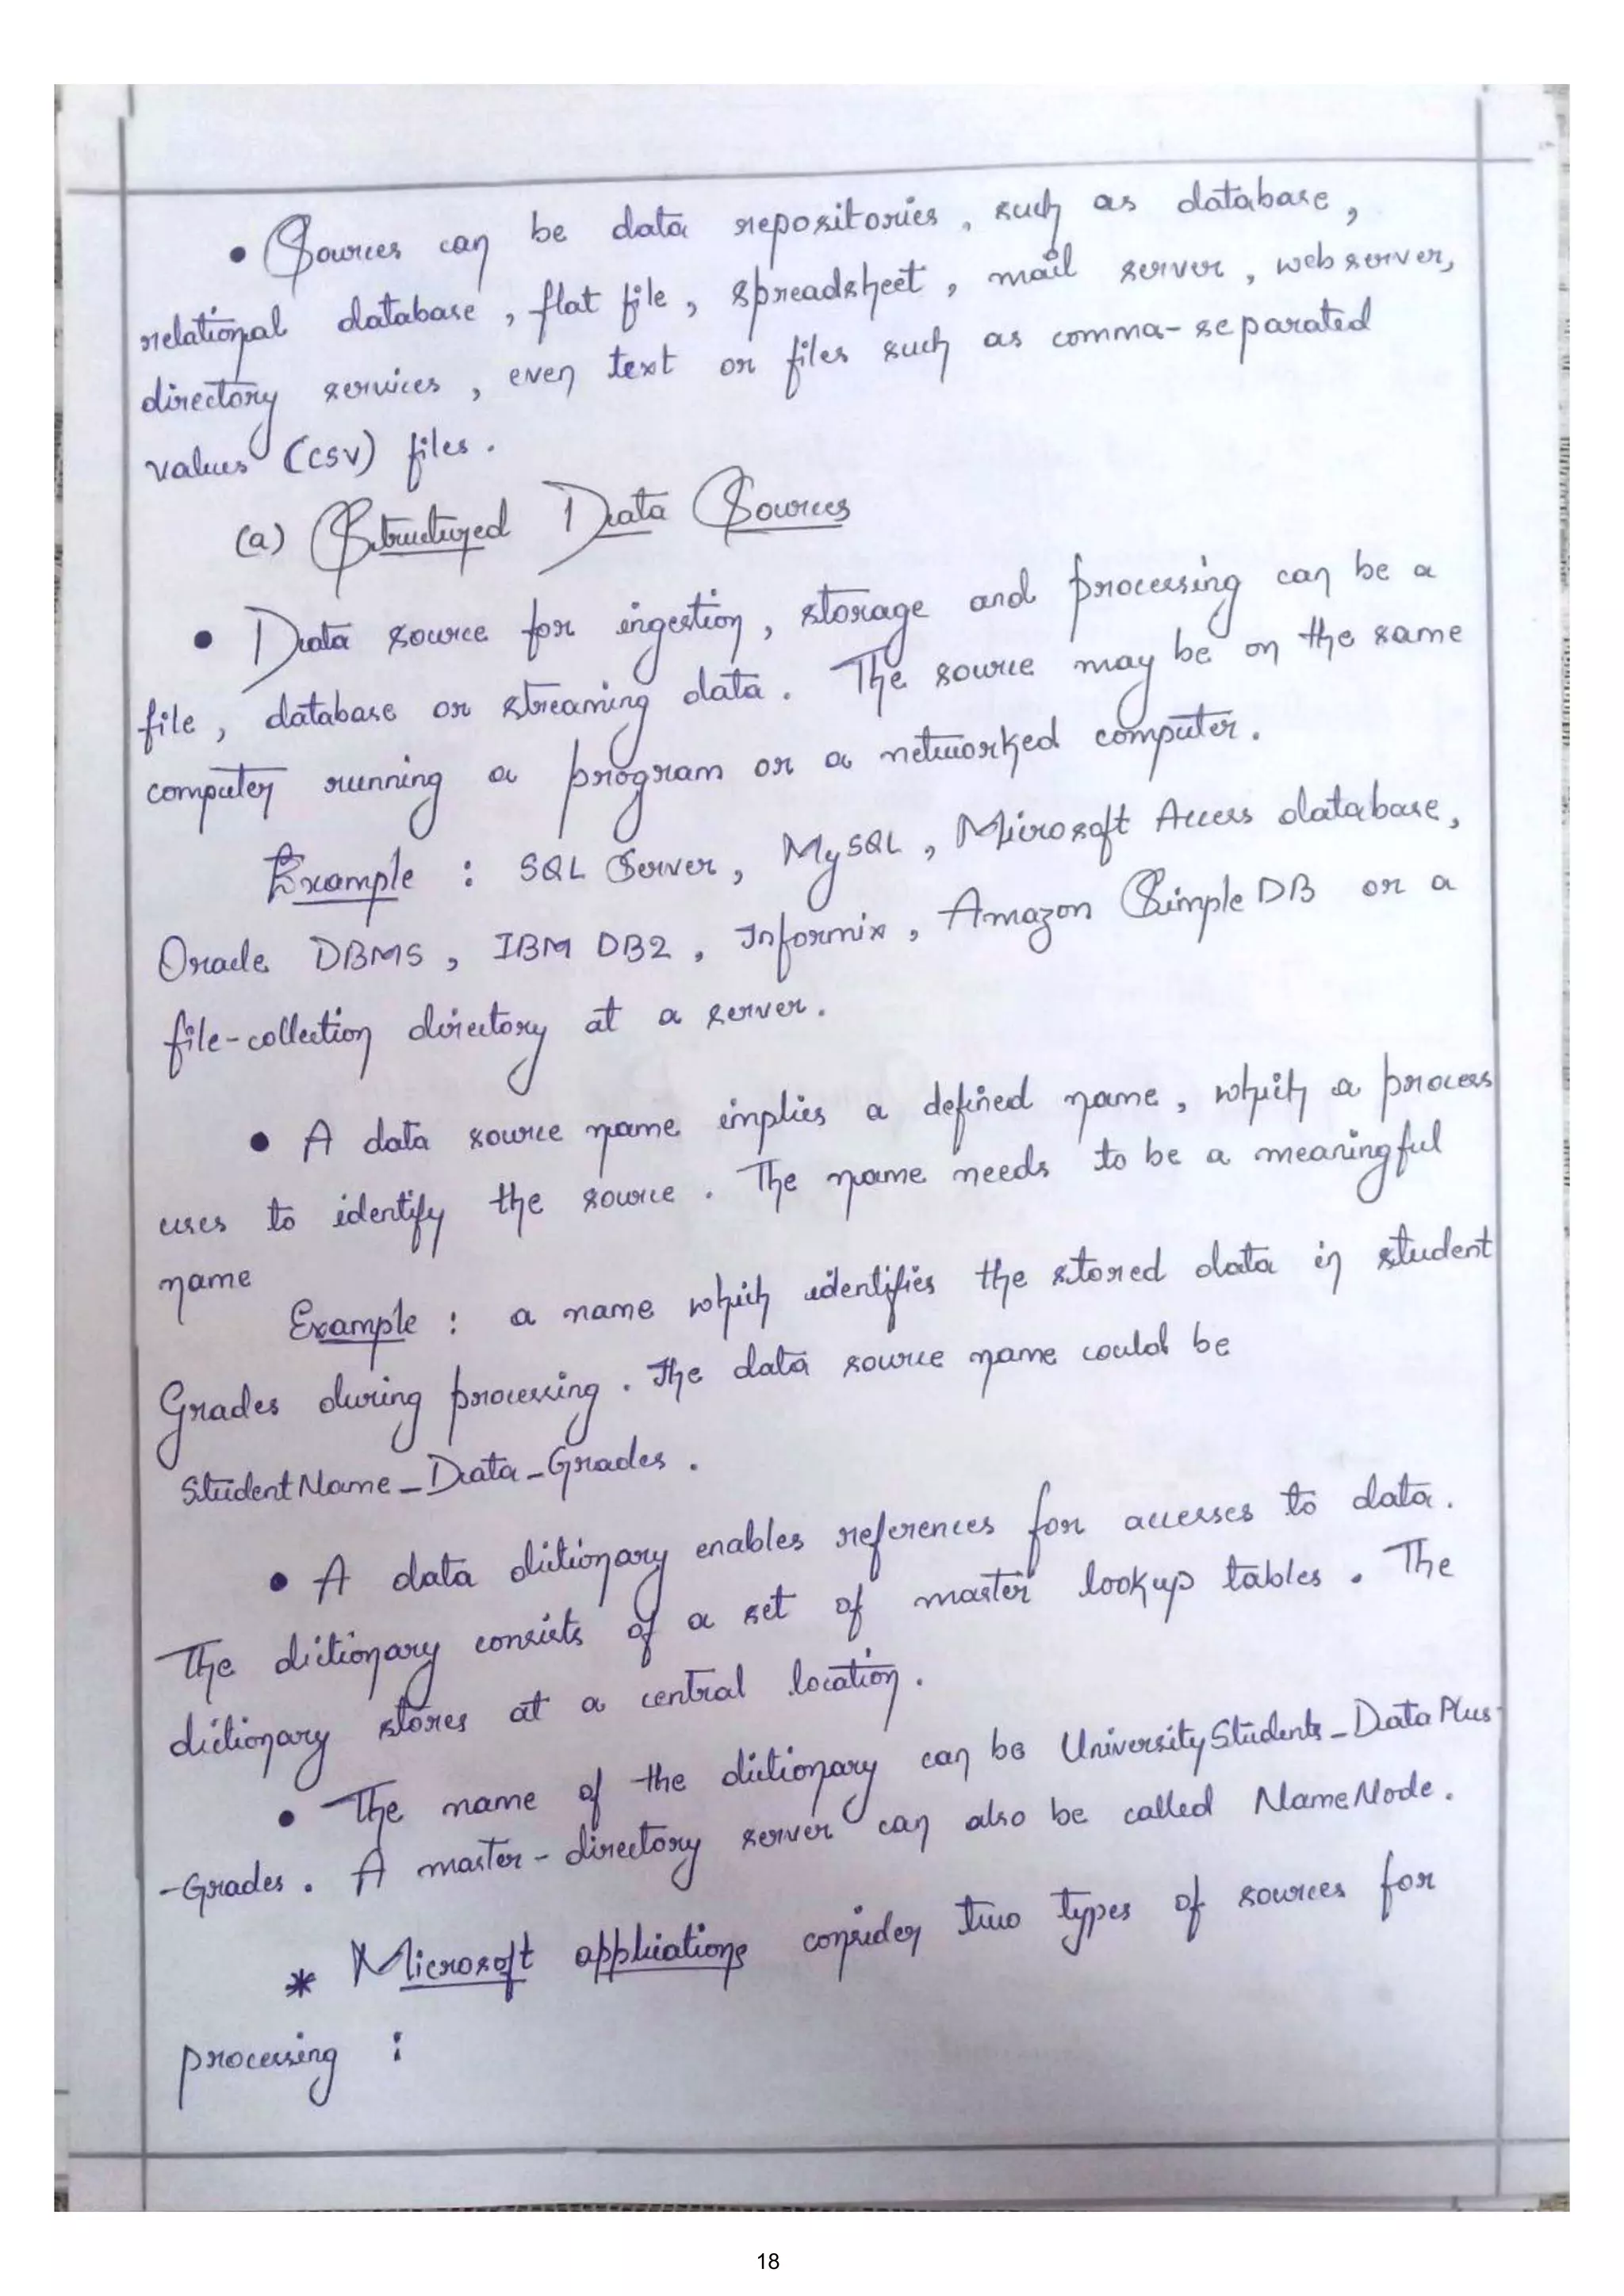 • Sources can be data repositories, such as database,
relational database, flat file, spreadsheet, mail server, web server,
directory services, even text or files such as comma-separated
values (CSV) files.
(a) Structured Data Sources
• Data source for ingestion, storage and processing can be a
file, database or streaming data. The source may be on the same
computer running a program or a networked computer.
Example : SQL Server, MySQL, Microsoft Access database,
Oracle DBMS, IBM DB2, Informix, Amazon SimpleDB or a
file-collection directory at a server.
• A data source name implies a defined name, which a process
uses to identify the source. The name needs to be a meaningful
name
Example : a name which identifies the stored data in student
Grades during processing. The data source name could be
StudentName_Data_Grades.
• A data dictionary enables references for accesses to data.
The dictionary consists of a set of master lookup tables. The
dictionary stores at a central location.
• The name of the dictionary can be UniversityStudents_DataPlus-
-Grades. A master-directory server can also be called NameNode.
* Microsoft applications consider two types of sources for
processing :
18